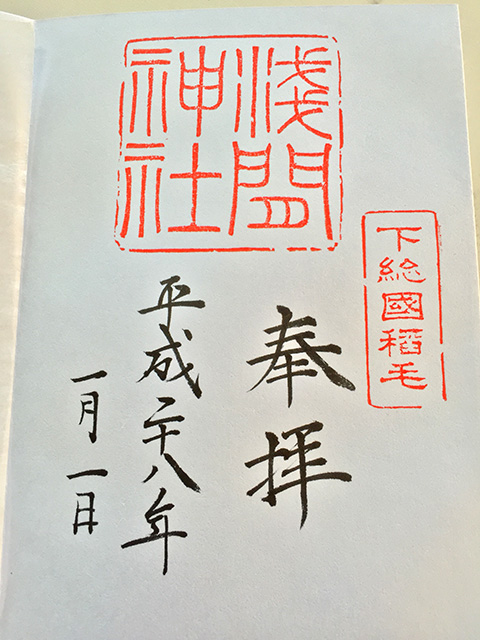 下総國稻毛
淺間
神社
奉拝
平成二十八年
一月一日